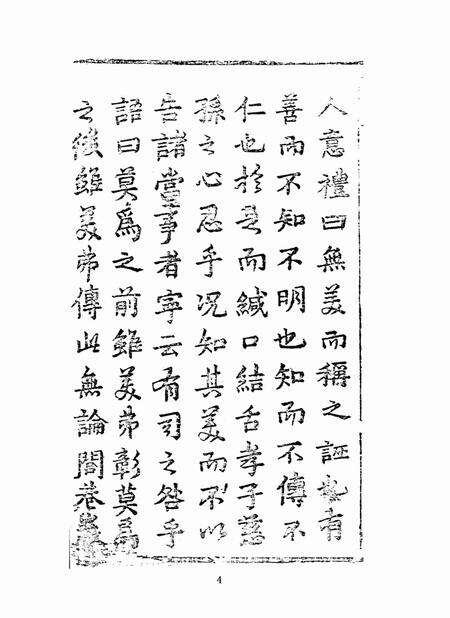 人意禮曰無美而稱之誣也有
善而不知不明也知而不傳不
仁也於是而緘口結舌孝子慈
孫之心忍乎況知其美而不以
告諸當事者寧云有司之咎乎
語曰莫爲之前雖美弗彰莫爲
之後雖美弗傳此無論閭巷
4